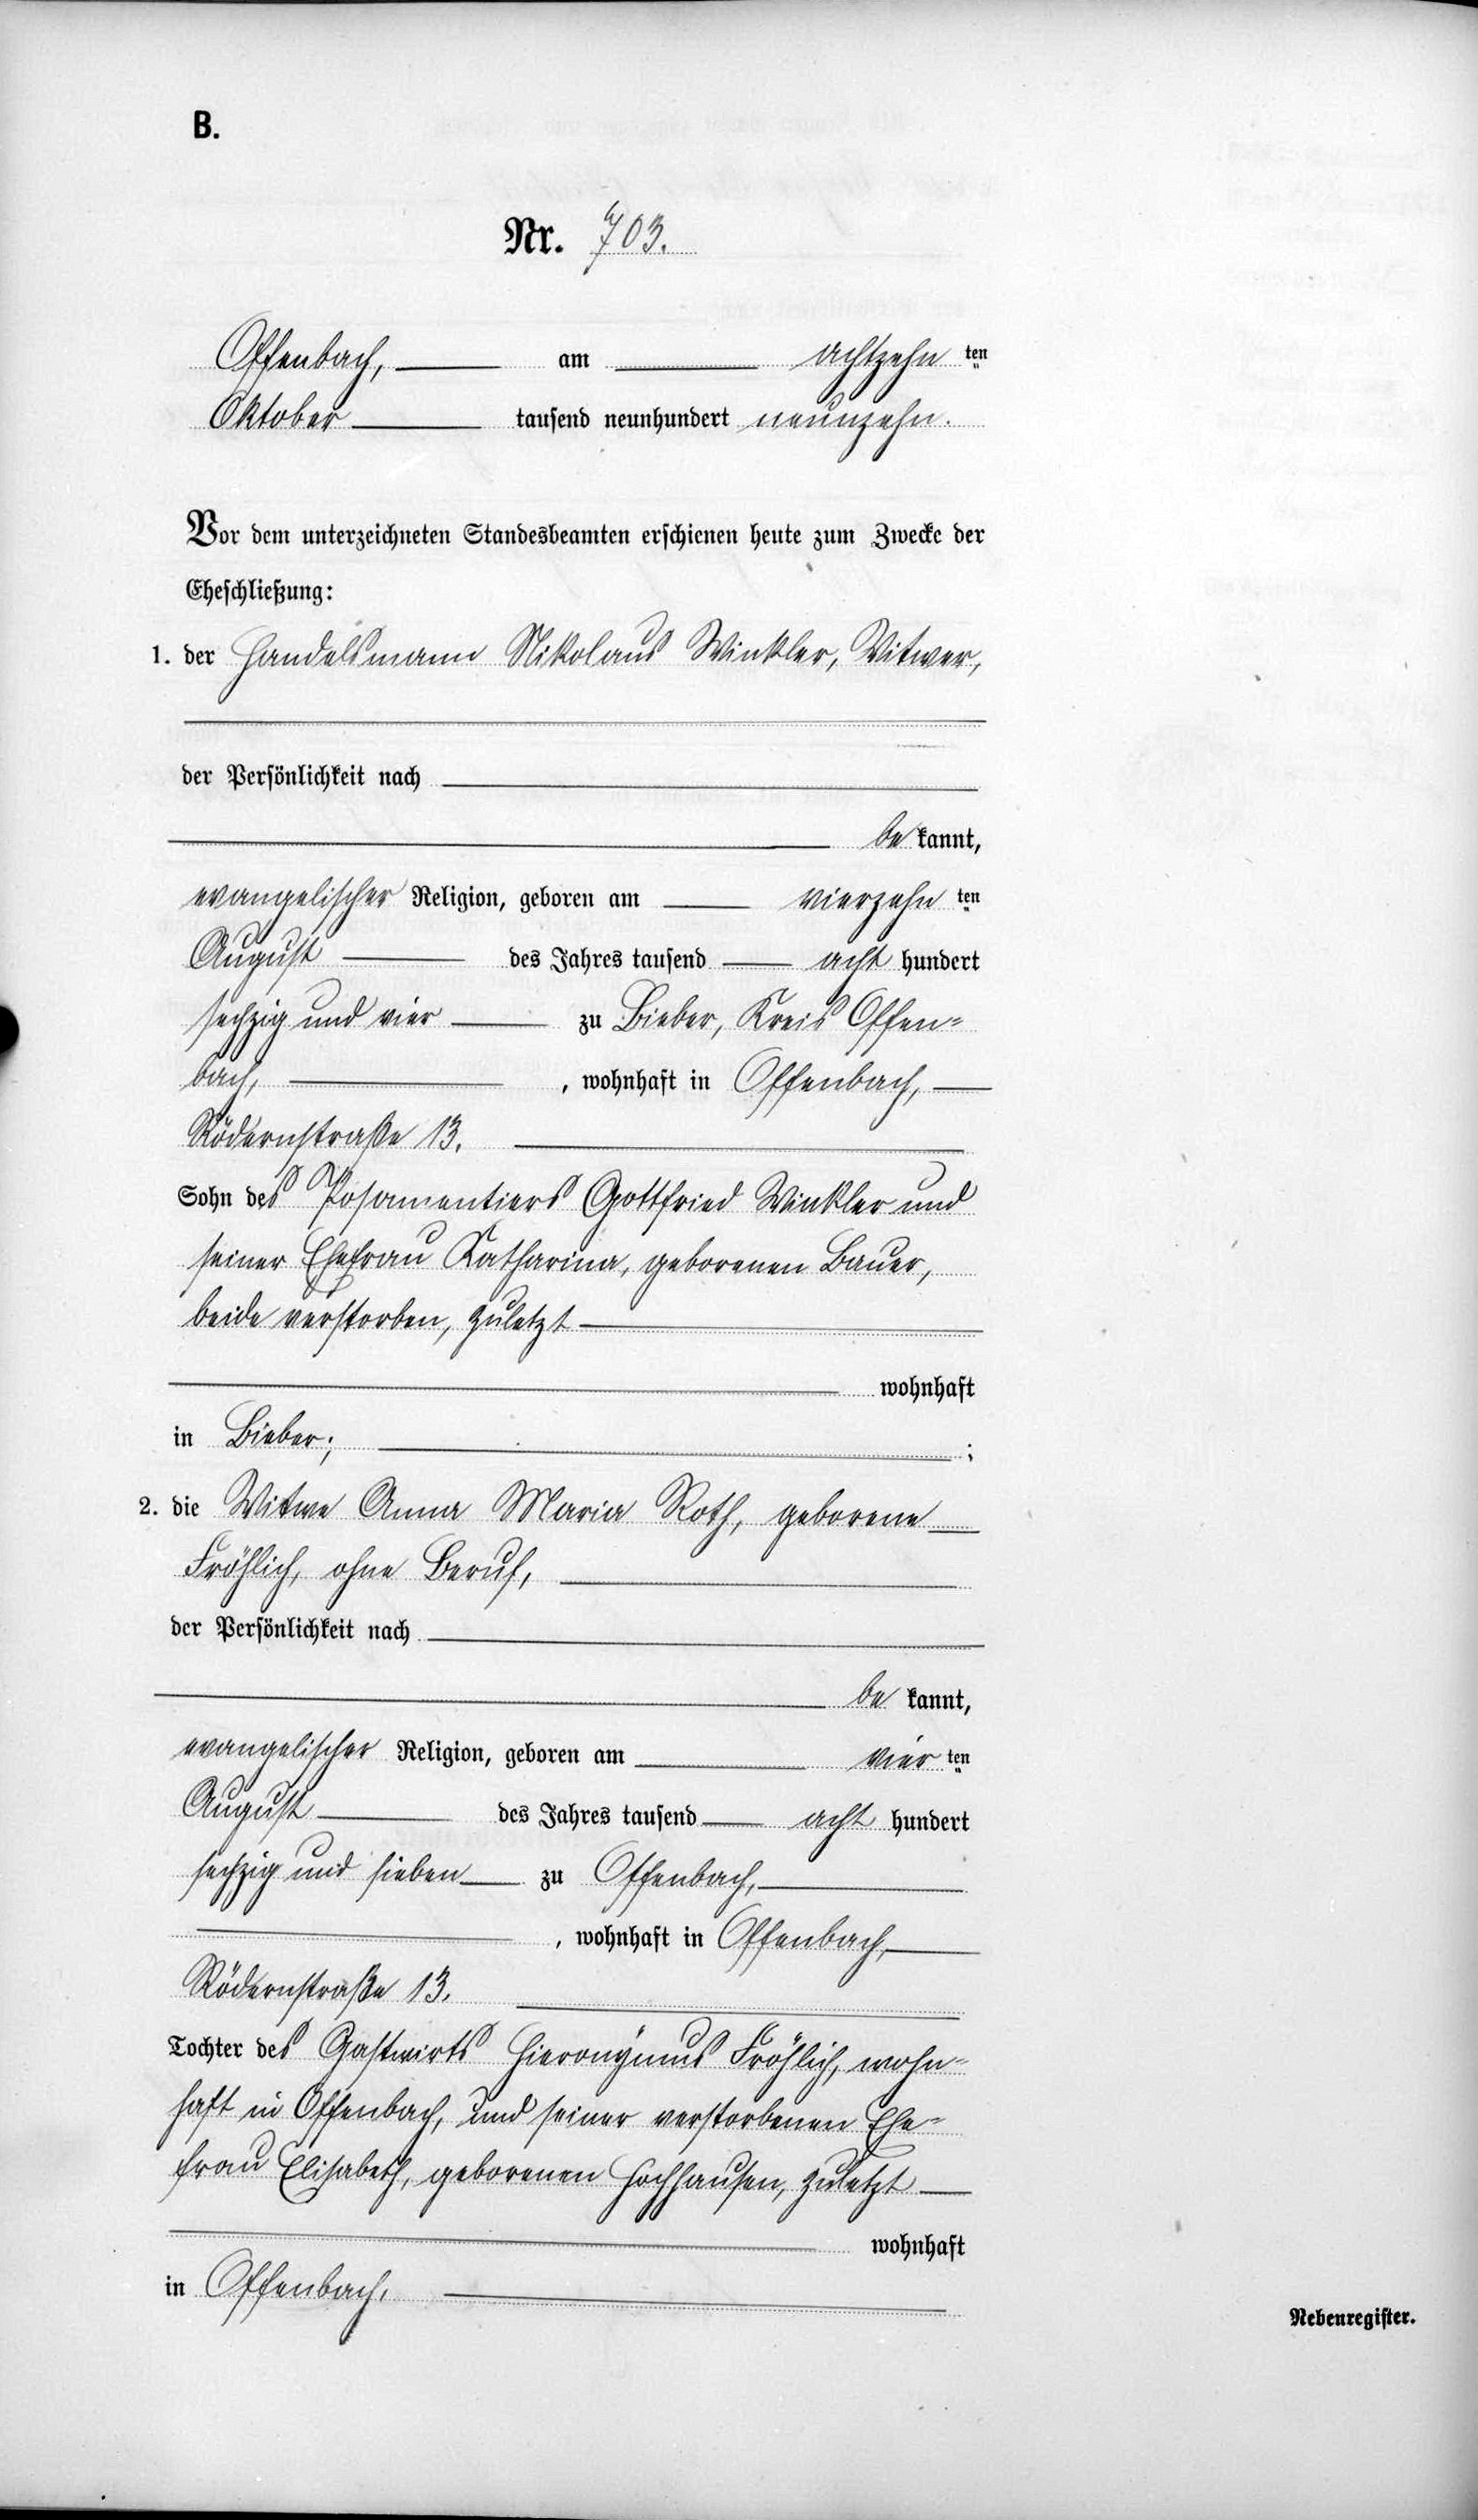 B.
Nr. 703.
Offenbach, am achtzehn ten
Oktober tausend neunhundert neunzehn.
Vor dem unterzeichneten Standesbeamten erschienen heute zum Zwecke der
Eheschließung:
1. der Handelsmann Nikolaus Winkler, Witwer,
der Persönlichkeit nach
be kannt,
evangelischer Religion, geboren am vierzehn ten
August des Jahres tausend acht hundert
sechzig und vier zu Bieber, Kreis Offen=
bach, , wohnhaft in Offenbach,
Rödernstraße 13.
Sohn des Posamentiers Gottfried Winkler und
seiner Ehefrau Katharina, geborenen Bauer,
beide verstorben, zuletzt
wohnhaft
in Bieber; ;
2. die Witwe Anna Maria Roth, geborene
Fröhlich, ohne Beruf,
der Persönlichkeit nach
be kannt,
evangelischer Religion, geboren am vier ten
August des Jahres tausend acht hundert
sechzig und sieben zu Offenbach,
, wohnhaft in Offenbach,
Rödernstraße 13.
Tochter des Gastwirts Hieronÿmus Fröhlich, wohn=
haft in Offenbach, und seiner verstorbenen Ehe=
frau Elisabeth, geborenen Hochhausen, zuletzt
wohnhaft
in Offenbach.
Nebenregister.